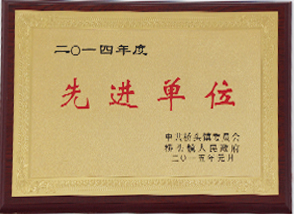 二〇一四年度
先进单位
中共桥头镇委员会
桥头镇人民政府
二〇一五年元月